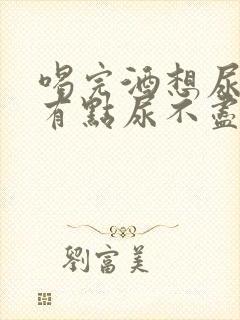 喝完酒想尿
有點尿不盡
劉富美